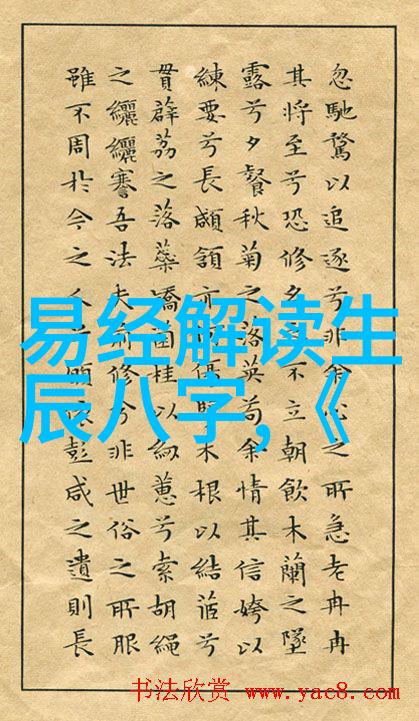 忽馳騖以追逐兮非之所急老冉冉
其將至兮恐修不立朝飲木蘭之墜
露兮夕餐秋菊之落英苟余情其信姱以
練要兮長顑頷亦木根以結茝兮
貫薜荔之落蘂矯菌桂以紉蕙兮索胡繩
之纚纚謇吾法夫前修兮非世俗之所服
雖不周於今之彭咸之遺則長
易经解读生
辰八字,《
书法欣赏 www.yac8.com